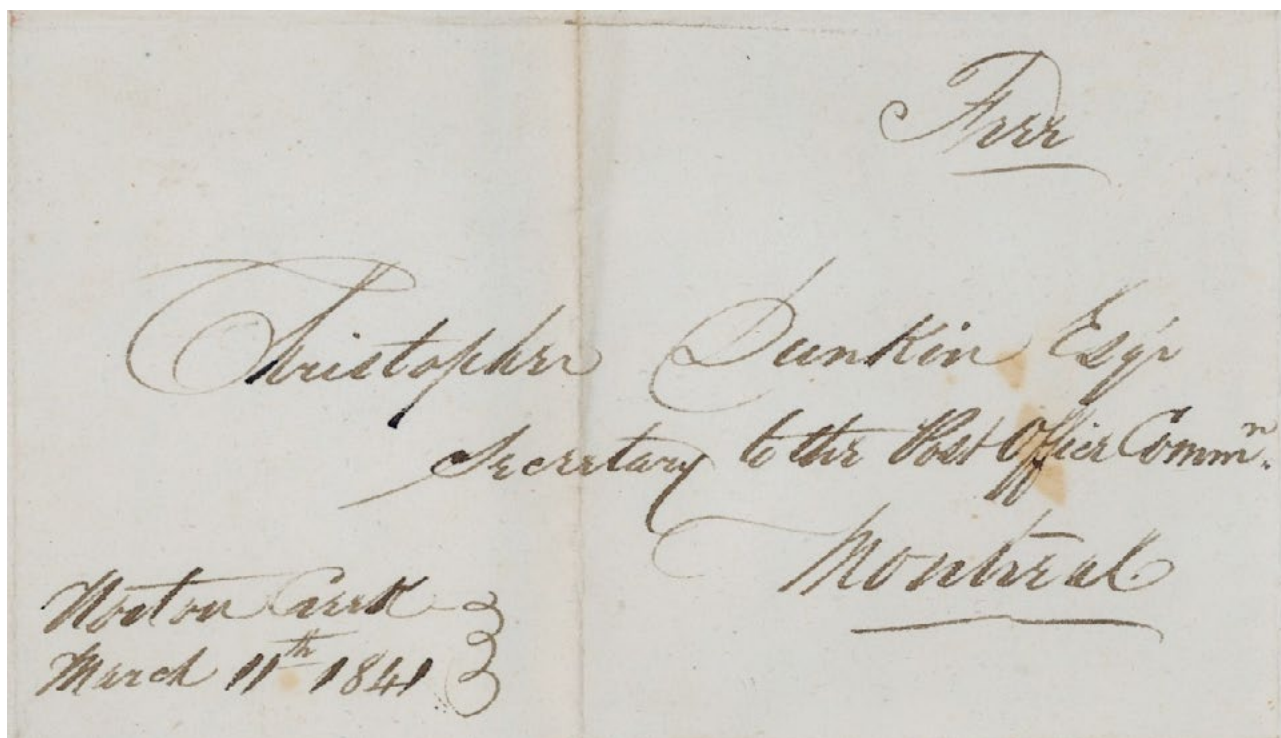 Free
Christopher Dunkin Esqr
Secretary to the Post Office Commn.
Montreal
Norton Creek
March 11th 1841